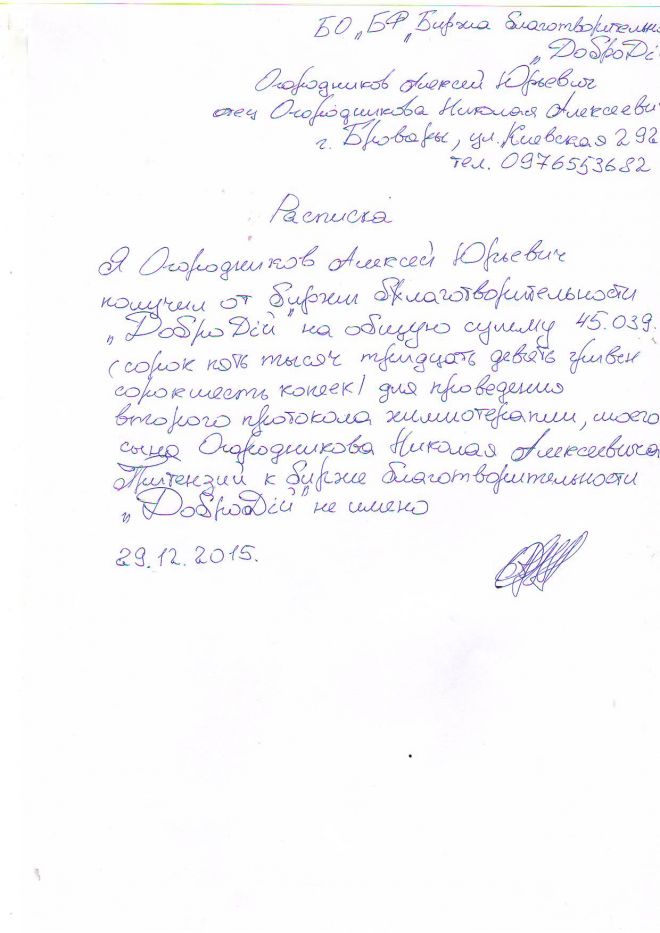 БО „БФ „Биржа благотворительно
„ДоброДій
Огородников Алексей Юрьевич
отец Огородникова Николая Алексееви
г. Бровары, ул. Киевская 292
тел. 0976553682
Расписка
Я Огородников Алексей Юрьевич
получил от биржи благотворительности
„ДоброДій" на общую сумму 45.039.
(сорок пять тысяч тридцать девять гривен
сорок шесть копеек) для проведения
второго протокола химиотерапии, моего
сына Огородникова Николая Алексеевича
Притензий к бирже благотворительности
„ДоброДій" не имею
29.12.2015.